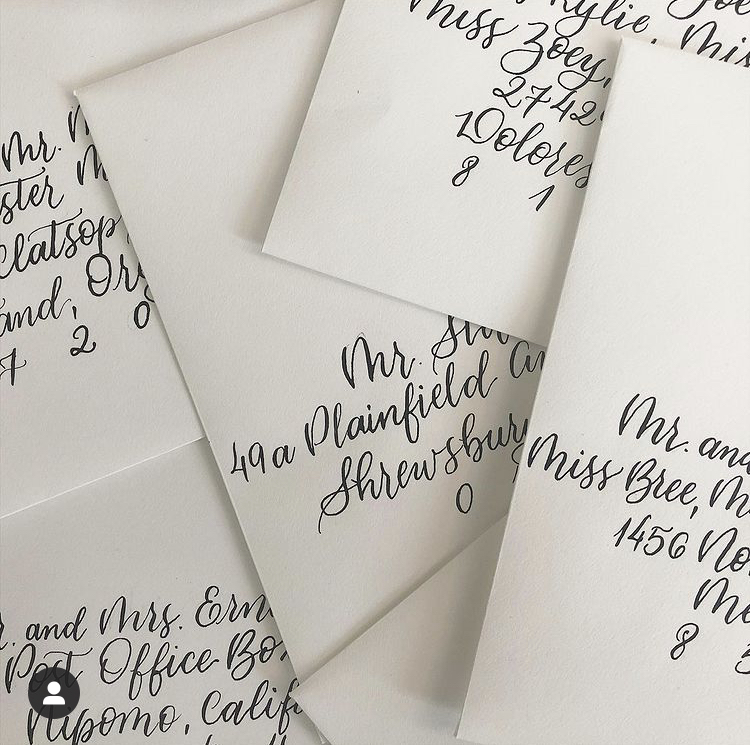 Kylie, Mis
Miss Zoey,
2742
Dolores
8 1
Mr.
ster M
Clatsop
and, Ore
7 2 0
Mr. Ste
49a Plainfield
Shrewsbury
0
Mr. and
Miss Bree, M
1456 No
Me
8
and Mrs. Ern
Post Office Bo
Nipomo, Calif